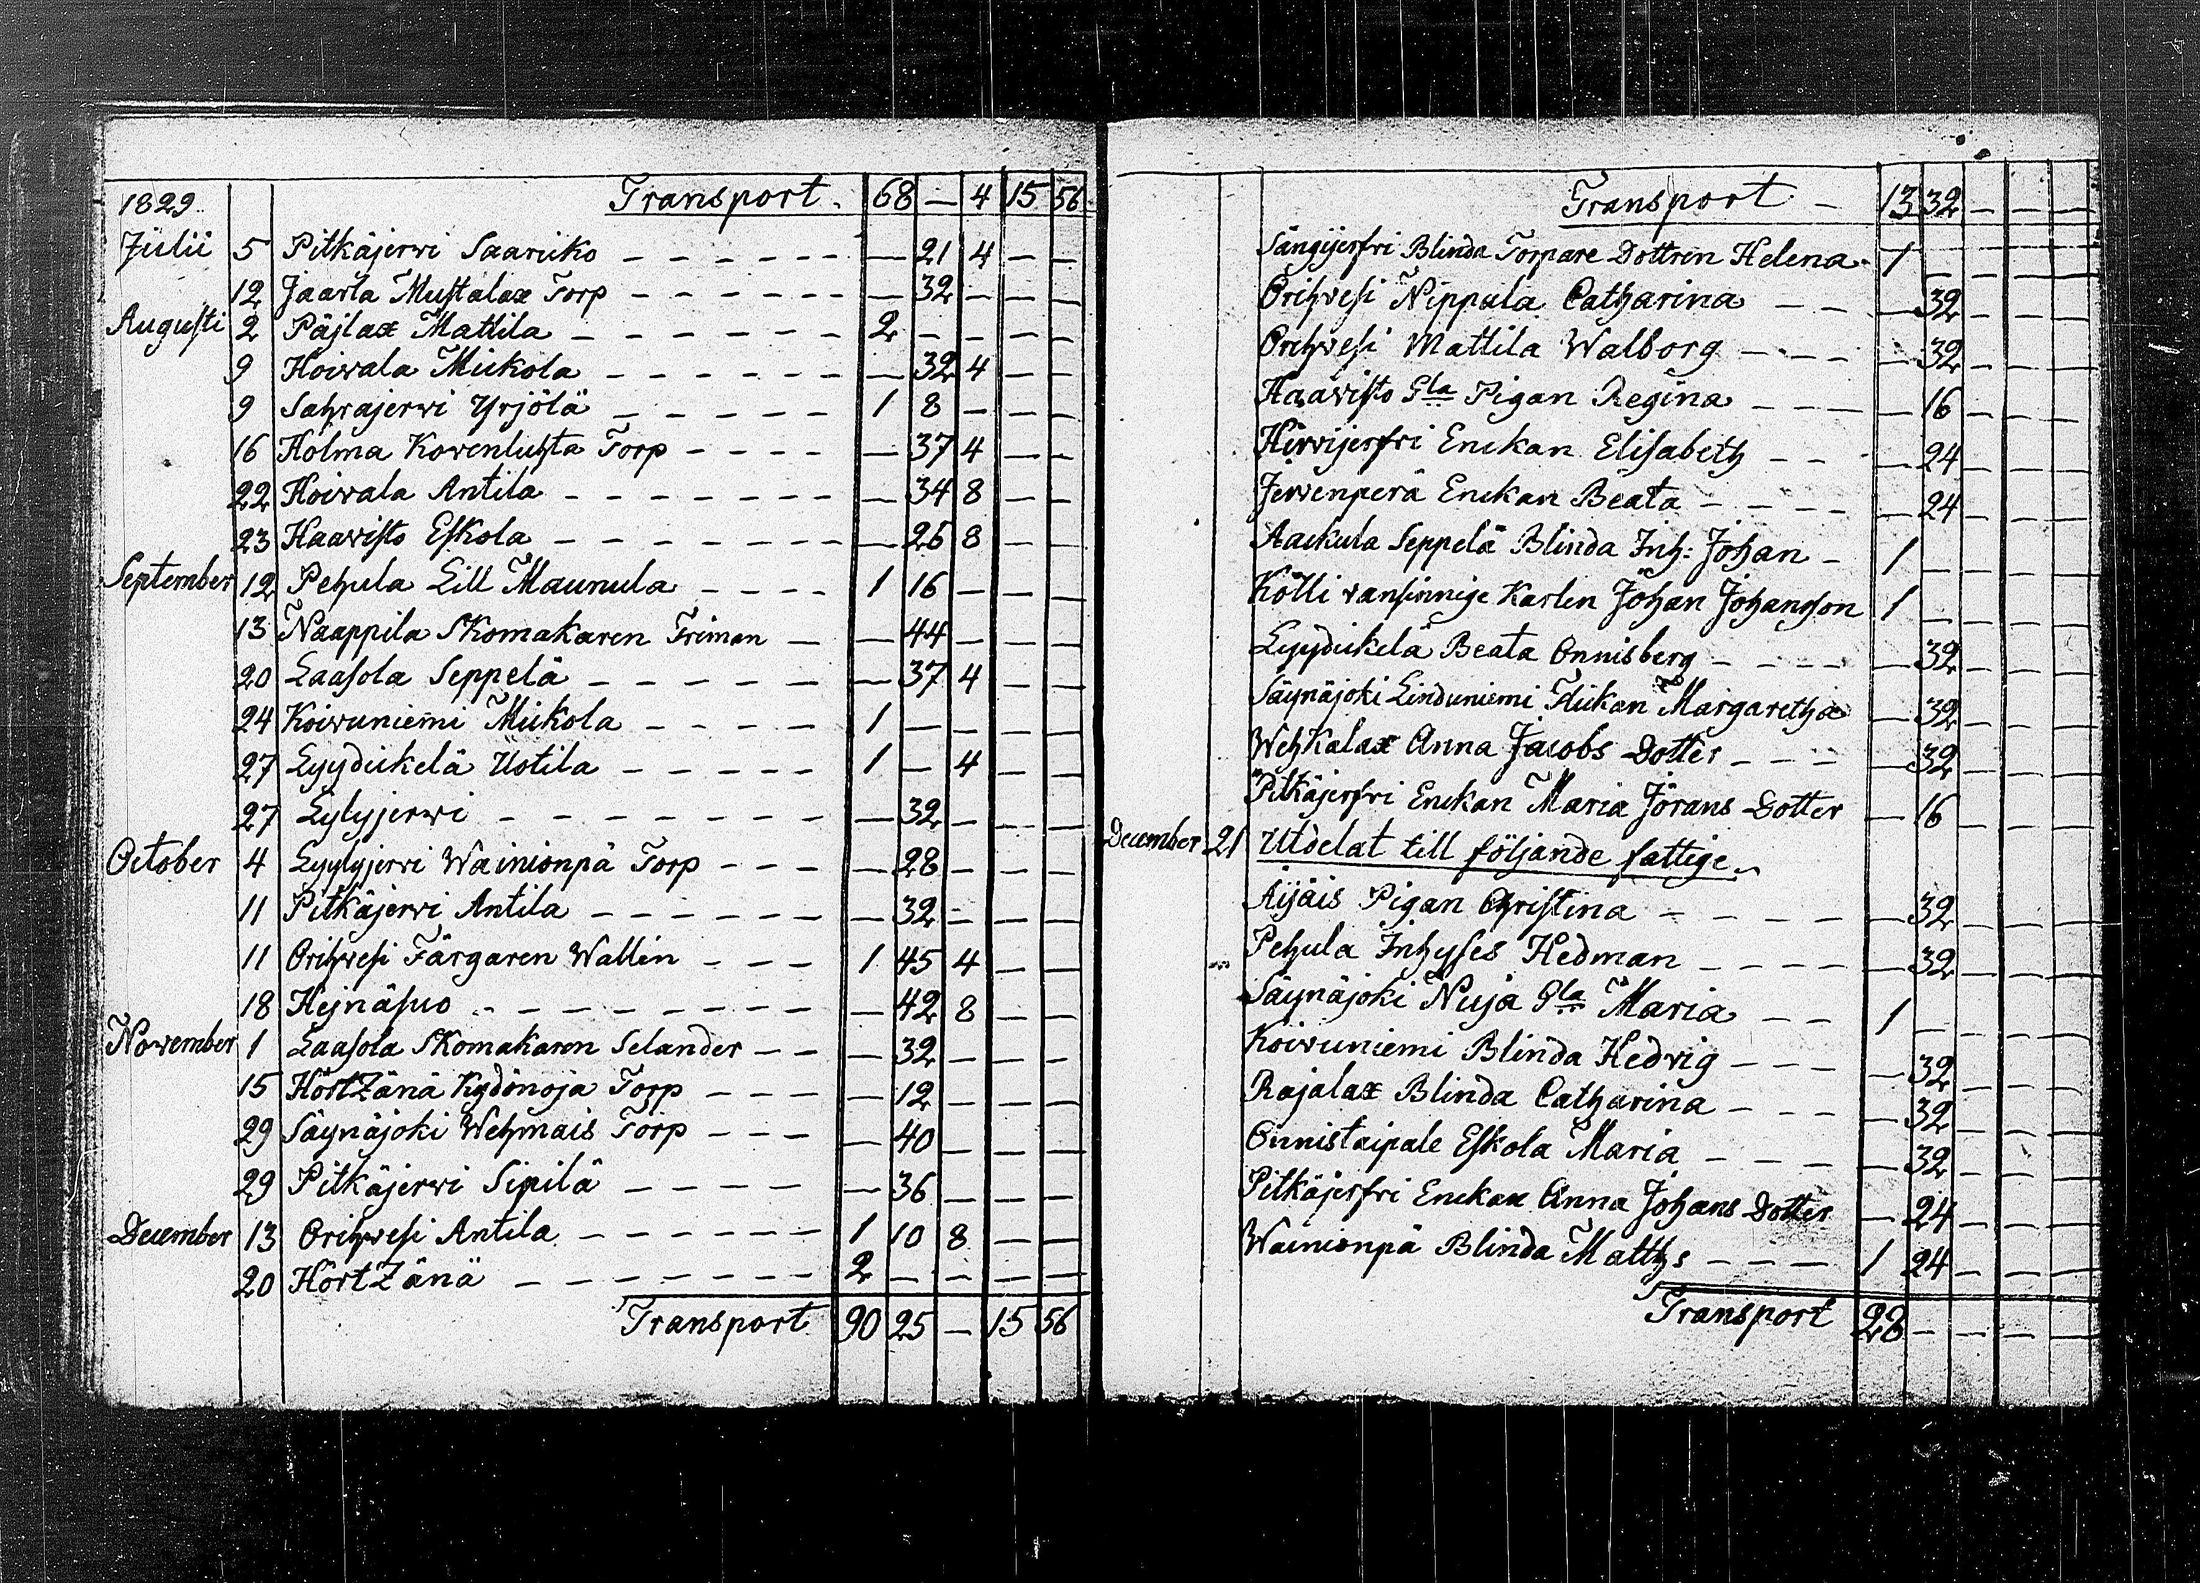 1829. Transport. 68 — 4 15 56
Julii 5 Pitkäjerwi Saariko — 21 4 — —
12 Jaarla Mustalax Torp — 32 — — —
Augusti 2 Päjlax Mattila 2 — — — —
9 Hoivala Mickola — 32 4 — —
9 Sahrajerwi Yrjölä 1 8 — — —
16 Holma Kowenluhta Torp — 37 4 — —
22 Hoivala Antila — 34 8 — —
23 Haavisto Eskola — 26 8 — —
September 12 Pehula Lill Maunula 1 16 — — —
13 Naappila Skomakaren Friman — 44 — — —
20 Laasola Seppelä — 37 4 — —
24 Koivuniemi Mickola 1 — — — —
27 Lyydickelä Uotila 1 — 4 — —
27 Lylyjerwi — 32 — — —
October 4 Lyylyjerwi Wainionpä Torp — 28 — — —
11 Pitkäjerwi Antila — 32 — — —
11 Orihvesi Färgaren Wallin 1 45 4 — —
18 Hejnäsuo — 42 8 — —
November 1 Laasola Skomakaren Selander — 32 — — —
15 Hörtzänä Kydönoja Torp — 12 — — —
29 Säynäjoki Wehmais Torp — 40 — — —
29 Pitkäjerwi Sipilä — 36 — — —
December 13 Orihvesi Antila 1 10 8 — —
20 Hörtzänä 2 — — — —
Transport 90 25 — 15 56
Transport 13 32 — — —
Sängijerfri Blinda Torpare Dottren Helena 1 — — — —
Orihvesi Nippula Catharina — 32 — — —
Orihvesi Mattila Walborg — 32 — — —
Haavisto Gla Pigan Regina — 16 — — —
Hirvijerfri Enckan Elisabeth — 24 — — —
Jervenperä Enckan Beata — 24 — — —
Aackula Seppelä Blinda Inh: Johan 1 — — — —
Kölli vansinnige Karlen Johan Johansson 1 — — — —
Lyydickelä Beata Onnisberg — 32 — — —
Säynäjoki Linduniemi Flickan Margaretha — 32 — — —
Wehkalax Anna Jacobs Dotter — 32 — — —
Pitkäjerfri Enckan Maria Jörans Dotter — 16 — — —
December 21 Utdelat till följande fattige
Äijäis Pigan Christina — 32 — — —
Pehula Inhyses Hedman — 32 — — —
Säynäjoki Nuja Gla Maria 1 — — — —
Koivuniemi Blinda Hedvig — 32 — — —
Rajalax Blinda Catharina — 32 — — —
Onnistaipale Eskola Maria — 32 — — —
Pitkäjerfri Enckan Anna Johans Dotter — 24 — — —
Wainionpä Blinda Matths 1 24 — — —
Transport 28 — — — —